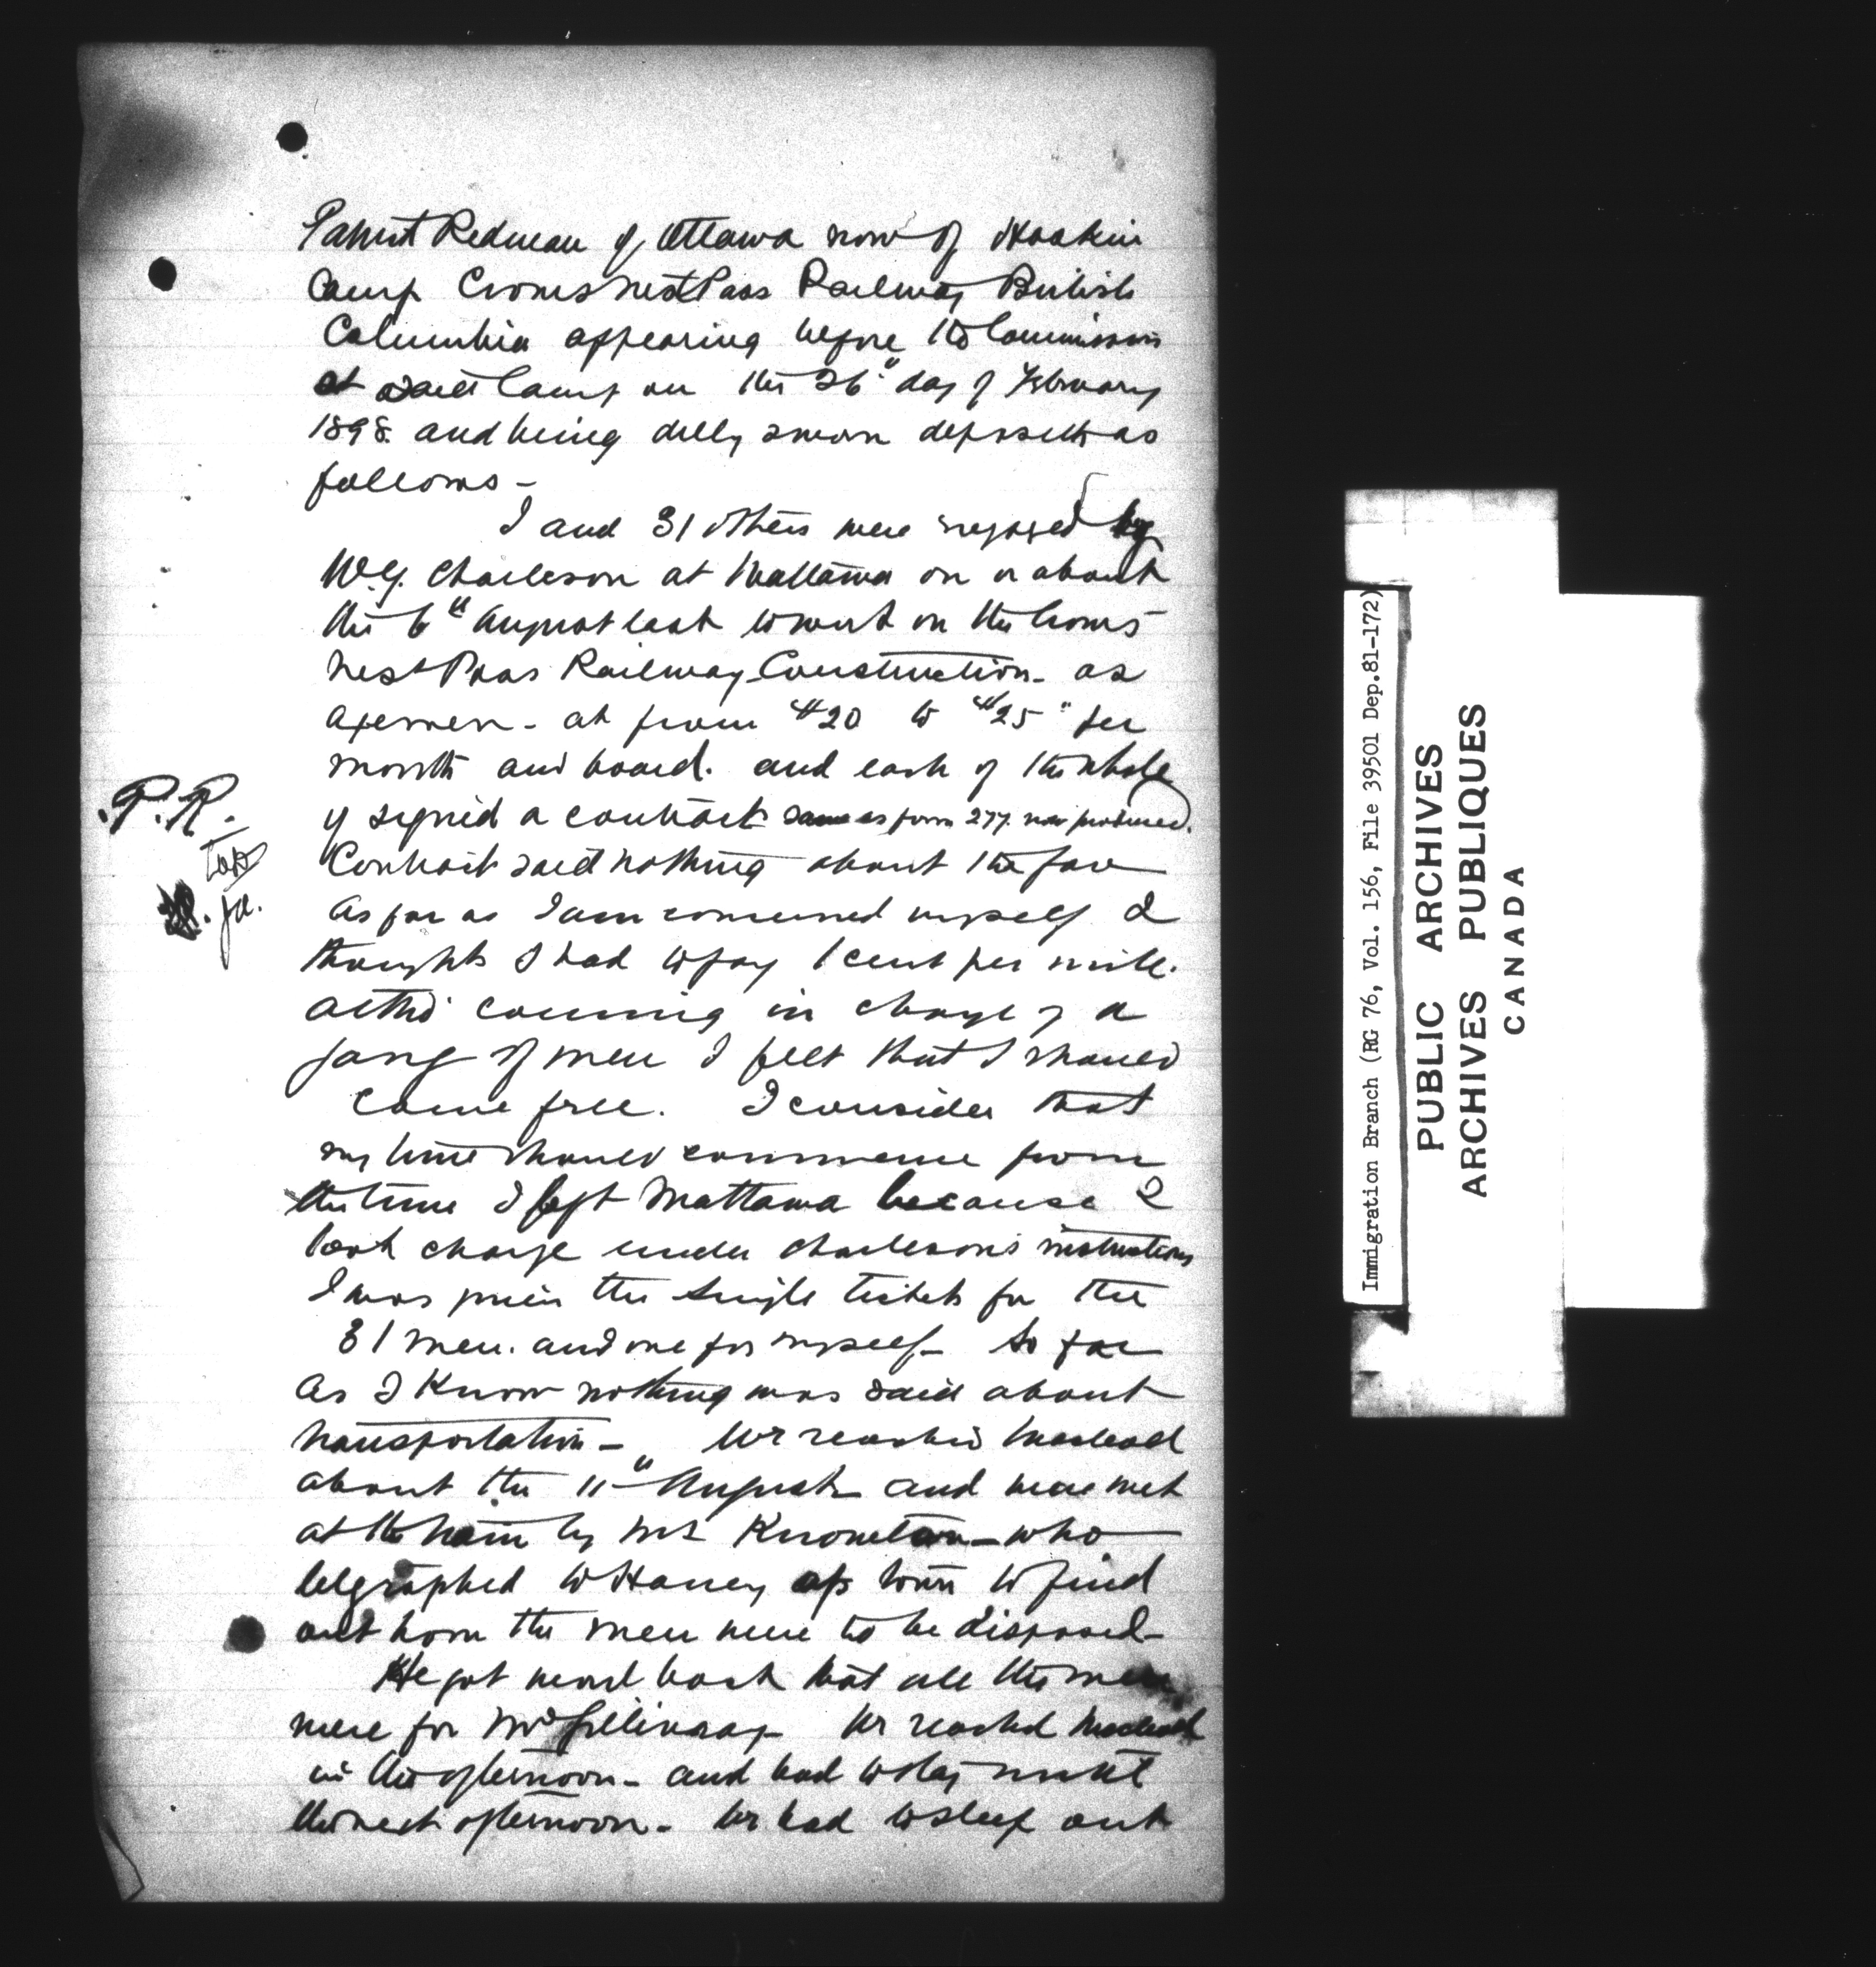 Patrick Redman of Ottawa now of Haskin
Camp Crows nest Pass Railway British
Columbia appearing before the Commission
at said Camp on the 26th day of February
1898. and being duly sworn deposeth as
follows -
I and 31 others were engaged by
W.G. Charleson at Mattawa on or about
the 6th August last to work on the Crows
nest Pass Railway Construction - as
axemen - at from $20 to $25 per
month and board. and each of the whole
of signed a contract same as form 277. now produced.
Contract said nothing about the fare
As far as I am concerned myself I
thought I had to pay 1 cent per mile.
altho' coming in charge of a
gang of men I felt that I should
come free. I consider that
my time should commence from
the time I left Mattawa because I
took charge under Charleson's instructions
I was given the single tickets for the
31 men. and one for myself - So far
as I know nothing was said about
transportation - We reached Macleod
about the 11th August and were met
at the train by Mr Knowlton - who
telegraphed to Haney up town to find
out how the men were to be disposed -
He got word back that all the men
were for McGillivray - We reached Macleod
in the afternoon - and had to stay until
the next afternoon - We had to sleep out
P.R.
Immigration Branch (RG 76, Vol. 156, File 39501 Dep.81-172)
PUBLIC ARCHIVES
ARCHIVES PUBLIQUES
CANADA